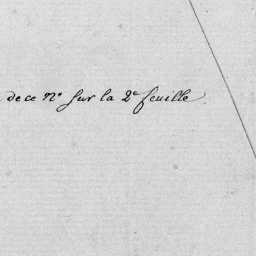 de ce N.º sur la 2.e feuille